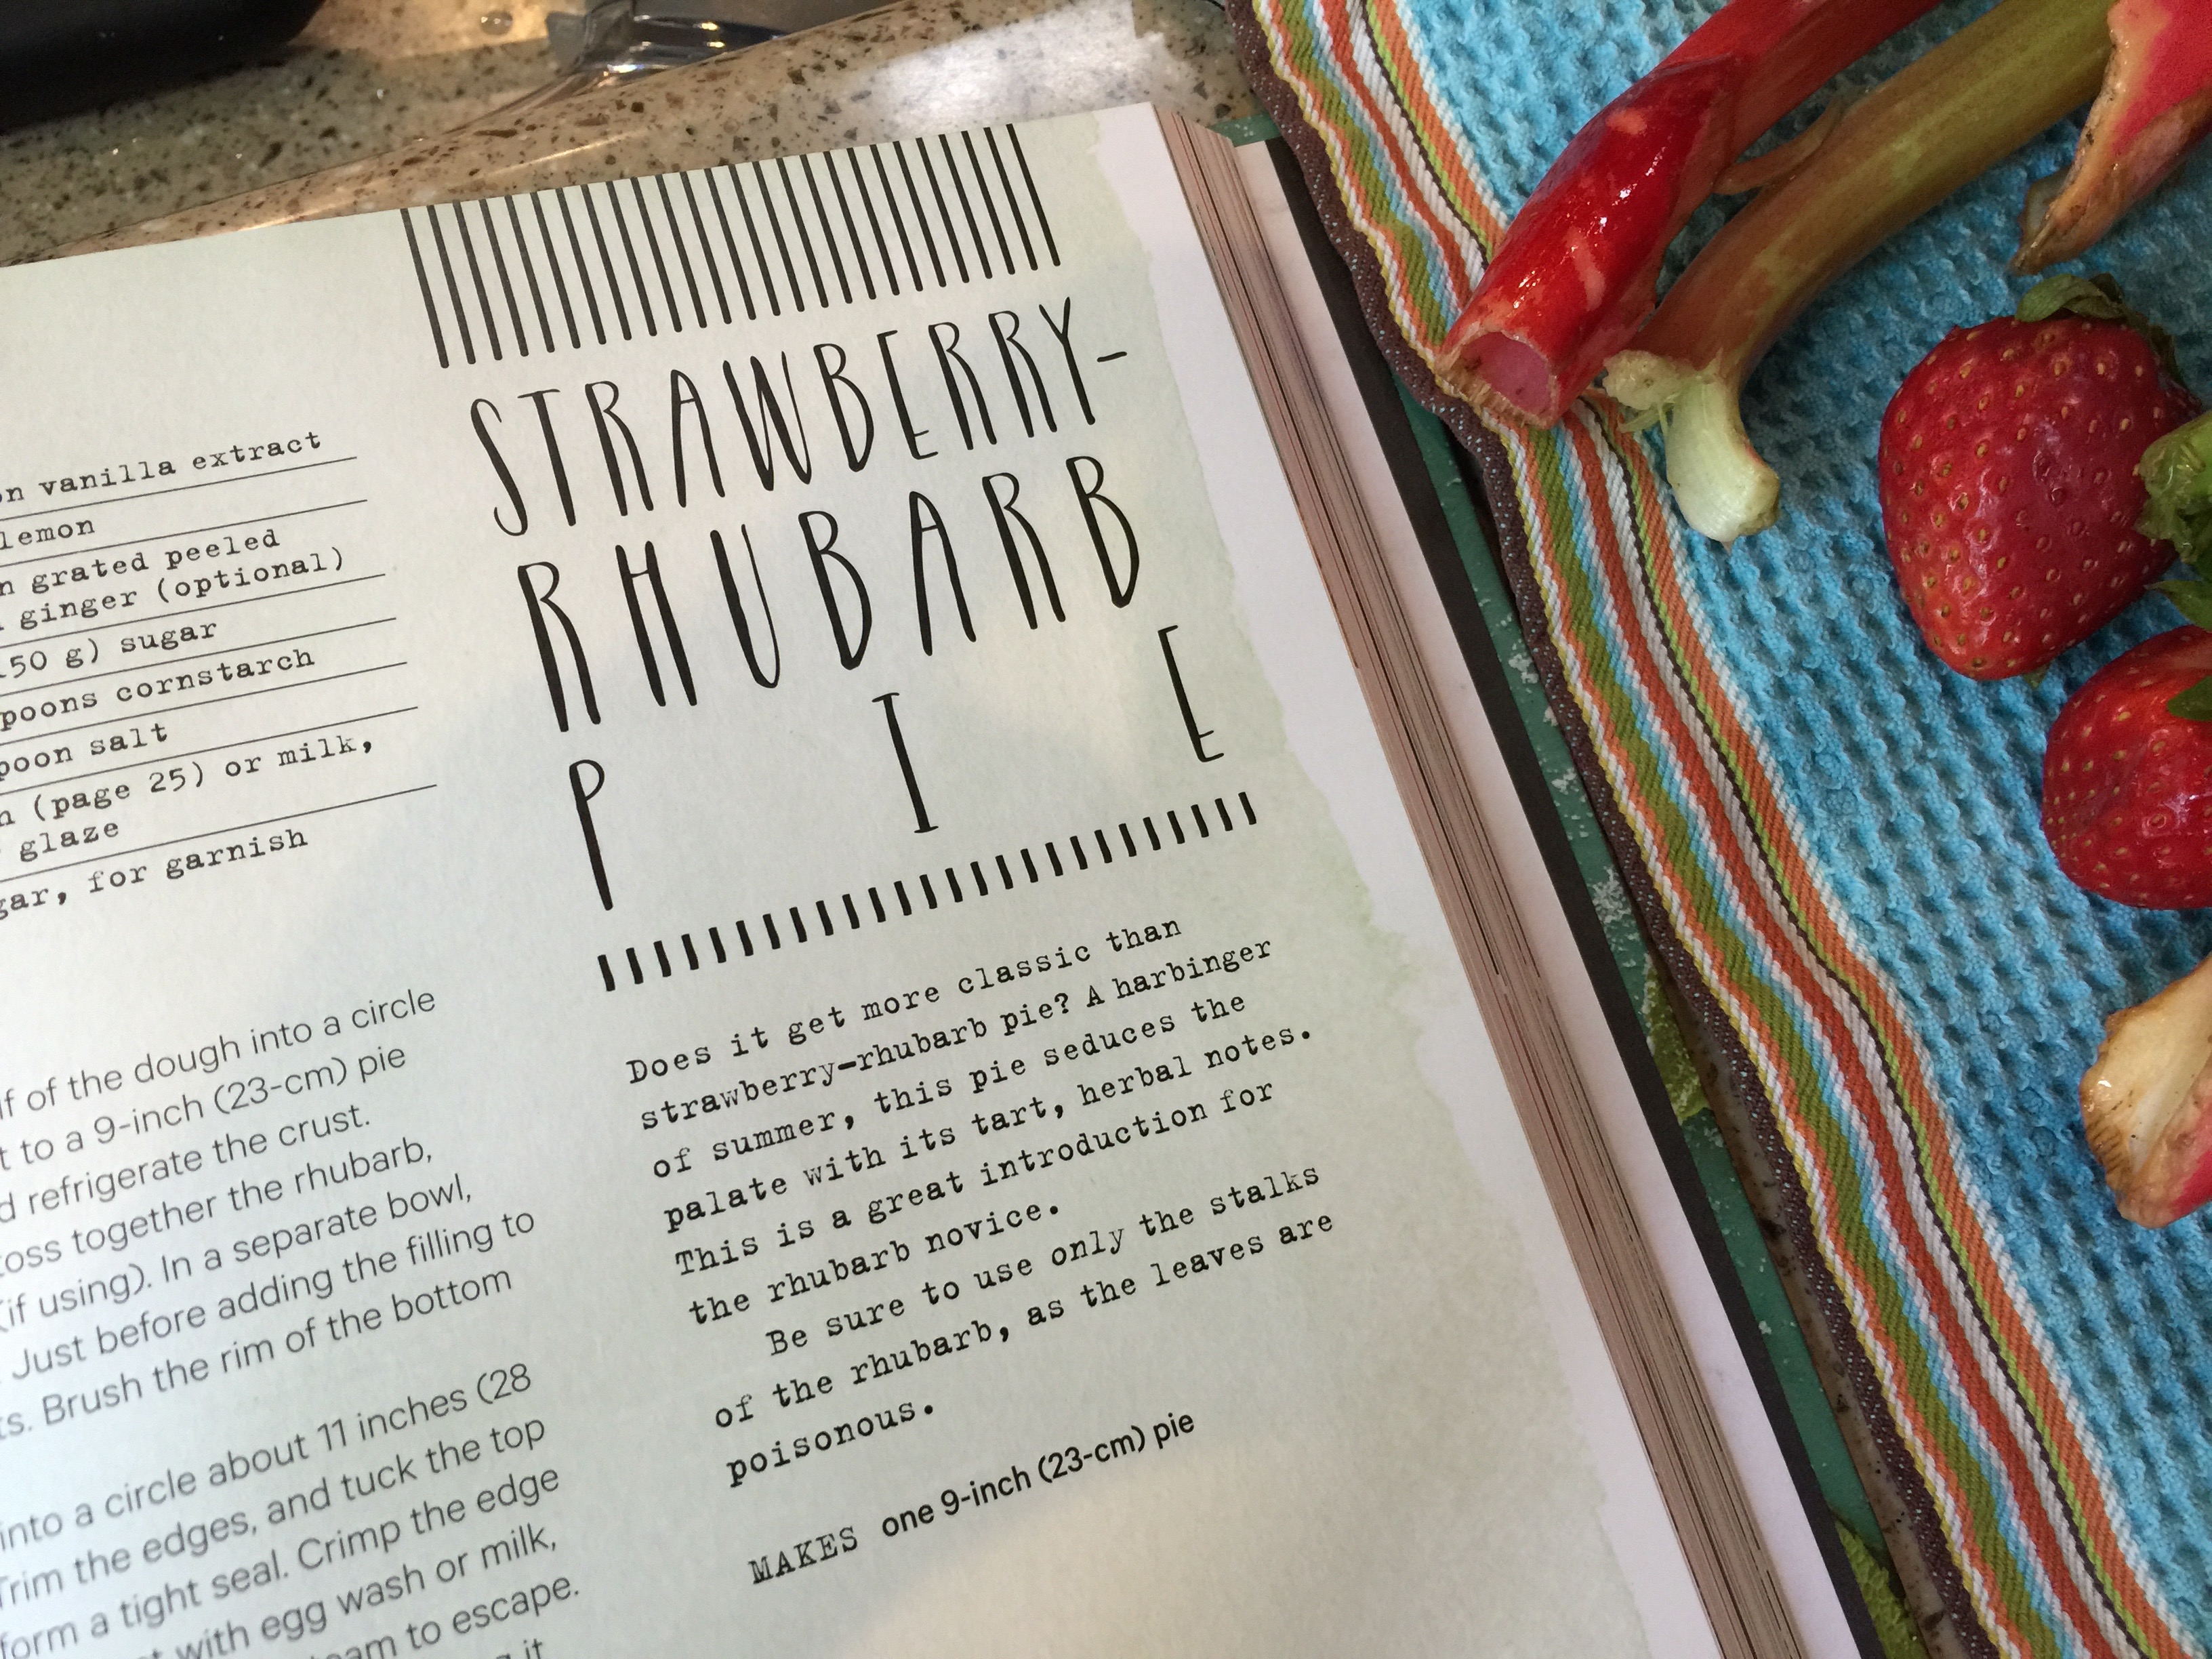 vanilla extract
lemon
grated peeled
ginger (optional)
50 g) sugar
cornstarch
salt
(page 25) or milk,
glaze
for garnish
of the dough into a circle
to a 9-inch (23-cm) pie
refrigerate the crust.
together the rhubarb,
(if using). In a separate bowl,
Just before adding the filling to
Brush the rim of the bottom
into a circle about 11 inches (28
Trim the edges, and tuck the top
form a tight seal. Crimp the edge
with egg wash or milk,
to escape.
it
STRAWBERRY-
RHUBARB
PIE
Does it get more classic than
strawberry-rhubarb pie? A harbinger
of summer, this pie seduces the
palate with its tart, herbal notes.
This is a great introduction for
the rhubarb novice.
Be sure to use only the stalks
of the rhubarb, as the leaves are
poisonous.
MAKES one 9-inch (23-cm) pie